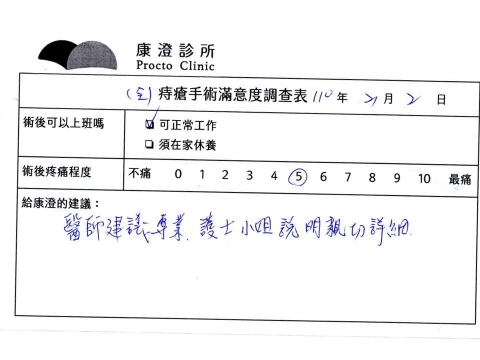 康澄診所
Procto Clinic
(全) 痔瘡手術滿意度調查表 110 年 月 2 日
術後可以上班嗎
☑ 可正常工作
□ 須在家休養
術後疼痛程度 不痛 0 1 2 3 4 5 6 7 8 9 10 最痛
給康澄的建議：
醫師建議專業、護士小姐說明親切詳細.